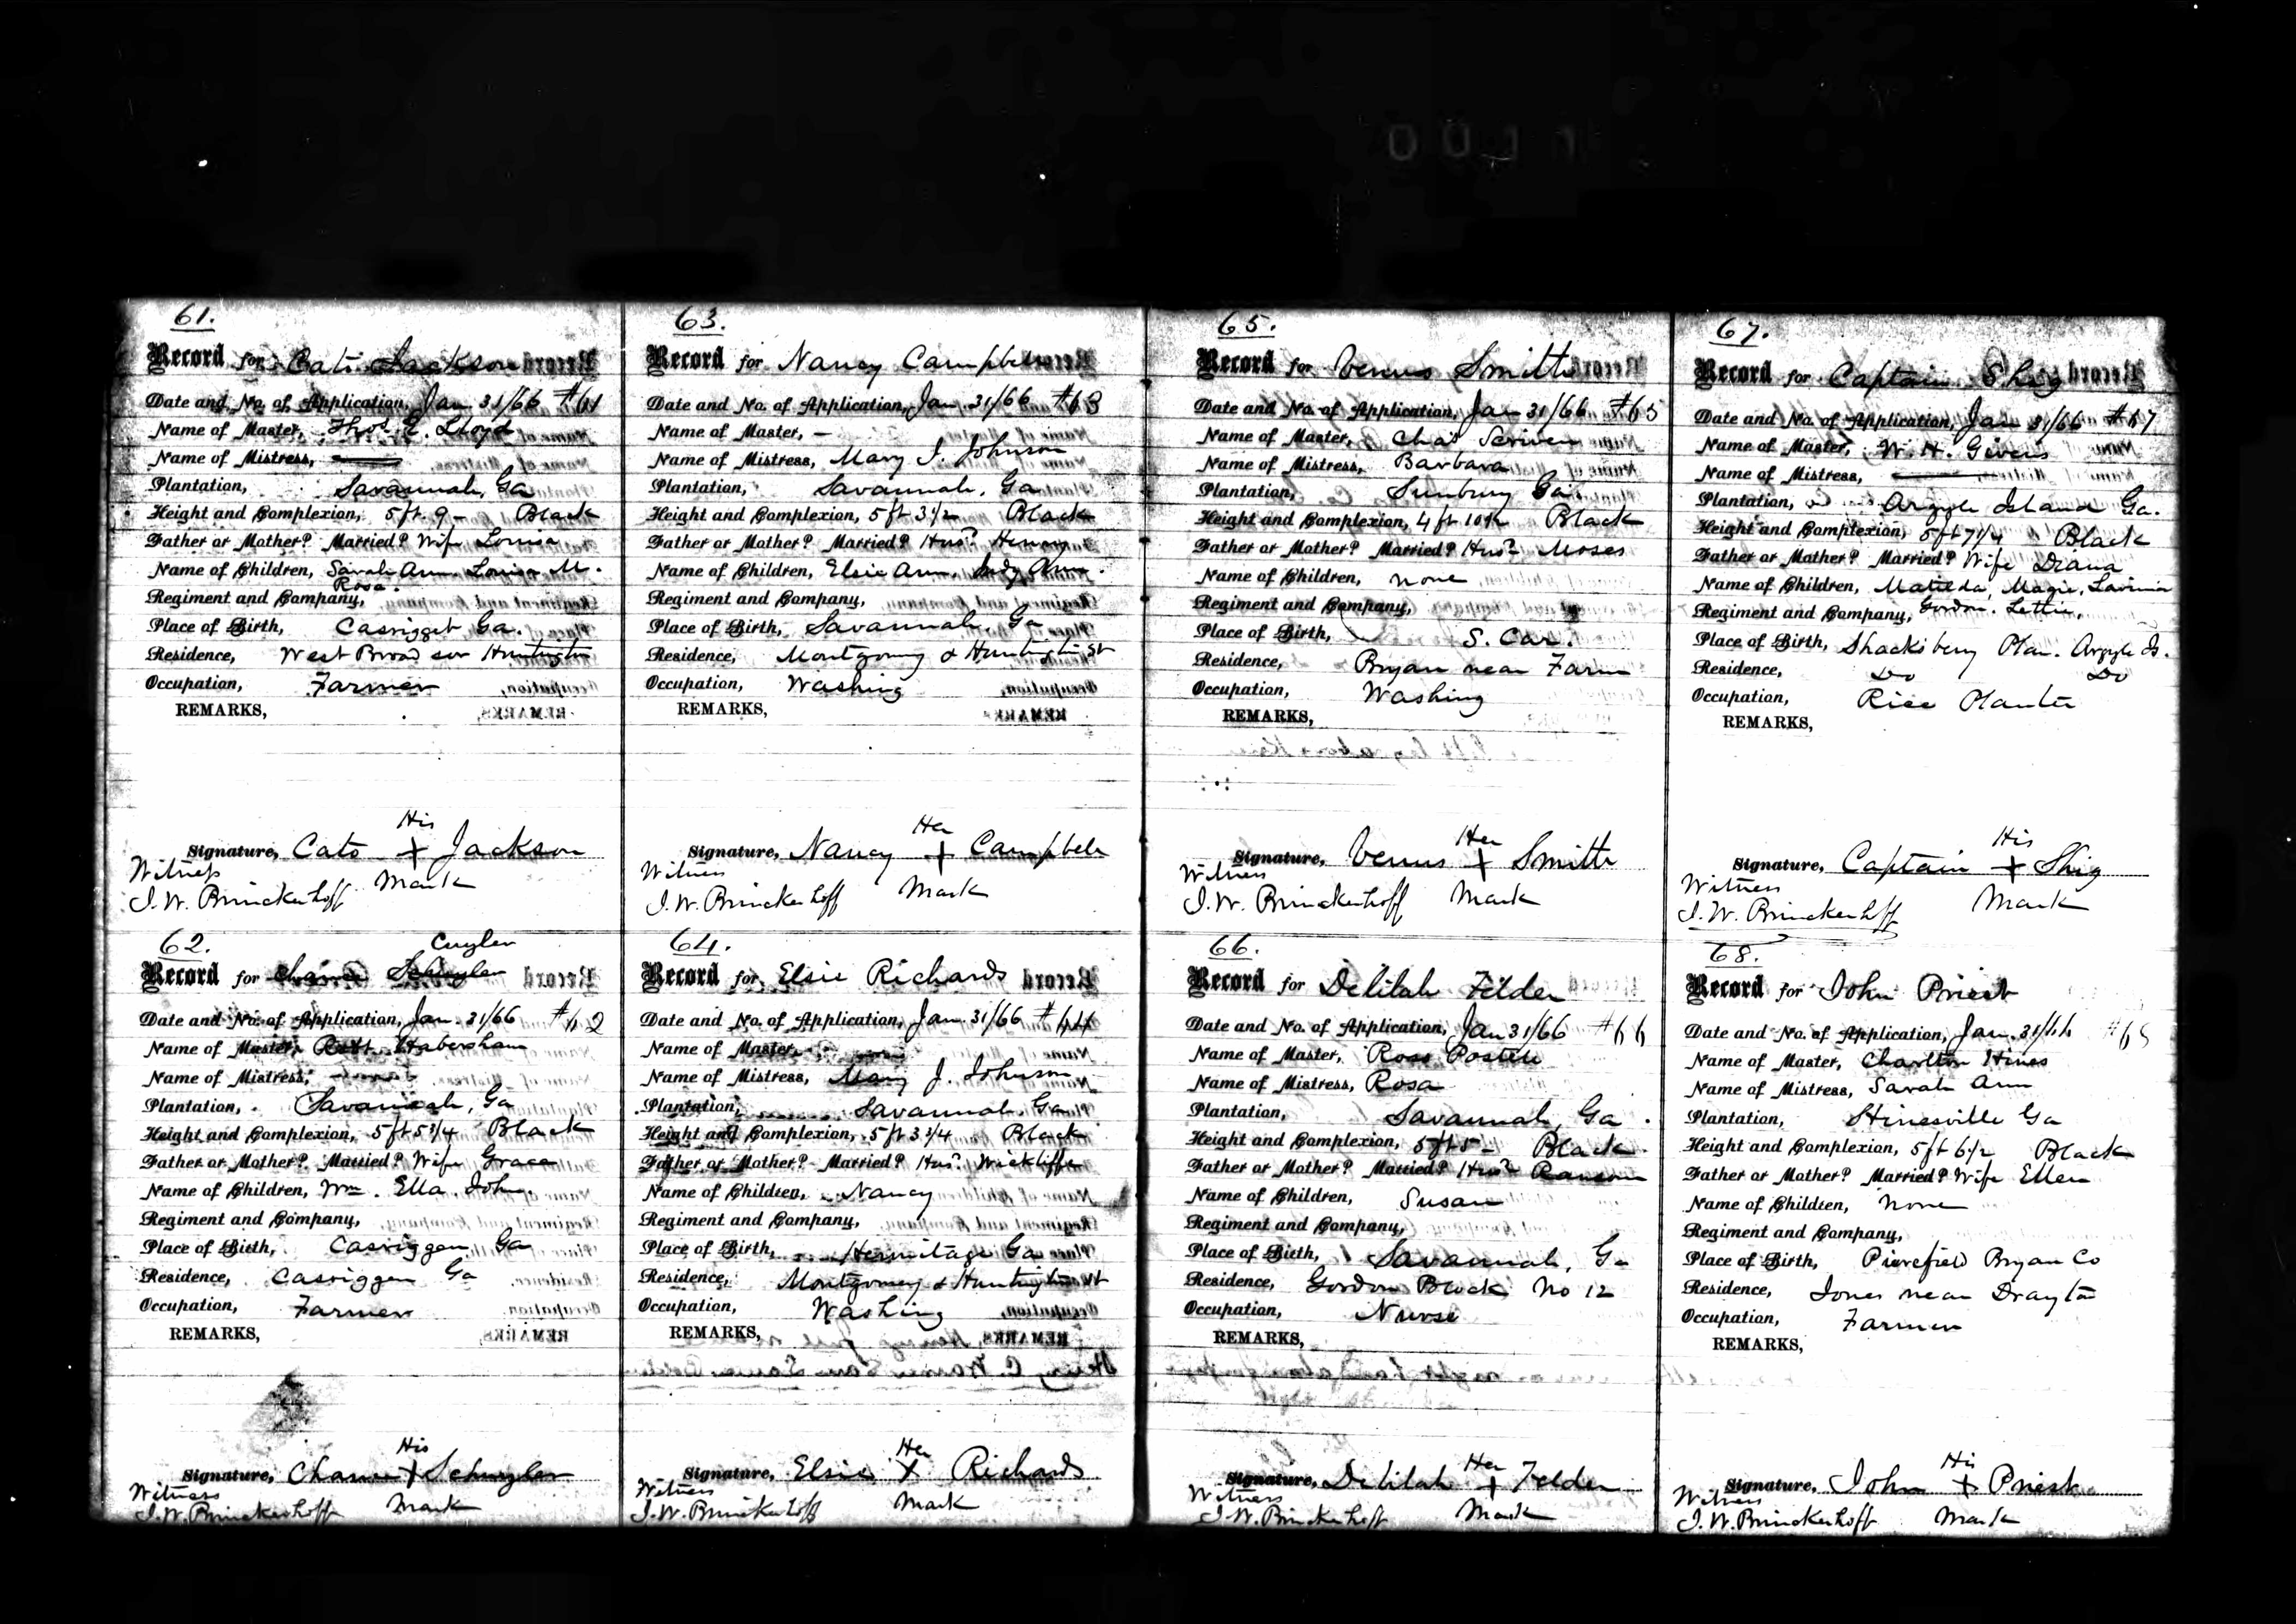 61.
Record for Cato Jackson
Date and No. of Application, Jan 31/66 #61
Name of Master, Thos. E. Lloyd
Name of Mistress,
Plantation, Savannah, Ga
Height and Complexion, 5 ft. 9 - Black
Father or Mother? Married? Wife Louisa
Name of Children, Sarah Ann, Louisa M.
Rosa.
Regiment and Company,
Place of Birth, Ga.
Residence, West Broad cor Huntington
Occupation, Farmer
REMARKS,
His
Signature, Cato + Jackson
Witness
Mark
J. W. Brinckerhoff
62.
Cuyler
Record for Schuyler
Date and No. of Application, Jan. 31/66 #62
Name of Master, Robt. Habersham
Name of Mistress,
Plantation, Savannah, Ga
Height and Complexion, 5 ft 5 3/4 Black
Father or Mother? Married? Wife Grace
Name of Children, Wm. Ella. John
Regiment and Company,
Place of Birth, Casriggen, Ga
Residence, Casriggen Ga
Occupation, Farmer
REMARKS,
His
Signature, + Schuyler
Witness
Mark
J. W. Brinckerhoff
63.
Record for Nancy Campbell
Date and No. of Application, Jan 31/66 #63
Name of Master, -
Name of Mistress, Mary J. Johnson
Plantation, Savannah, Ga
Height and Complexion, 5 ft 3 1/2 Black
Father or Mother? Married? Husd Henry
Name of Children, Elsie Ann, Judy Ann.
Regiment and Company,
Place of Birth, Savannah, Ga
Residence, Montgomery & Huntington St
Occupation, Washing
REMARKS,
Her
Signature, Nancy + Campbell
Witness
Mark
J. W. Brinckerhoff
64.
Record for Elsie Richards
Date and No. of Application, Jan 31/66 #64
Name of Master,
Name of Mistress, Mary J. Johnson
Plantation, Savannah, Ga
Height and Complexion, 5 ft 3 3/4 Black
Father or Mother? Married? Husd Wickliffe
Name of Children, Nancy
Regiment and Company,
Place of Birth, Hermitage Ga
Residence, Montgomery & Huntington St
Occupation, Washing
REMARKS,
Her
Signature, Elsie X Richards
Witness
Mark
J. W. Brinckerhoff
65.
Record for Venus Smith
Date and No. of Application, Jan 31/66 #65
Name of Master, Chas Scriven
Name of Mistress, Barbara
Plantation, Sunbury Ga.
Height and Complexion, 4 ft 10 1/2 Black
Father or Mother? Married? Husd Moses
Name of Children, none
Regiment and Company,
Place of Birth, S. Car.
Residence, Bryan near Farm
Occupation, Washing
REMARKS,
Her
Signature, Venus + Smith
Witness
Mark
J. W. Brinckerhoff
66.
Record for Delilah Felder
Date and No. of Application, Jan 31/66 #66
Name of Master, Ross Postell
Name of Mistress, Rosa
Plantation, Savannah, Ga.
Height and Complexion, 5 ft 5 - Black
Father or Mother? Married? Husd Ransom
Name of Children, Susan
Regiment and Company,
Place of Birth, Savannah, Ga
Residence, Gordon Block No 12
Occupation, Nurse
REMARKS,
Her
Signature, Delilah + Felder
Witness
Mark
J. W. Brinckerhoff
67.
Record for Captain Shig
Date and No. of Application, Jan 31/66 #67
Name of Master, W. H. Givens
Name of Mistress,
Plantation, Argyle Island Ga.
Height and Complexion, 5 ft 7 1/4 Black
Father or Mother? Married? Wife Diana
Name of Children, Matilda, Magie, Lavinia
Gordon. Lettie,
Regiment and Company,
Place of Birth, Shacksbery Plan. Argyle Is.
Residence, Do Do
Occupation, Rice Planter
REMARKS,
His
Signature, Captain + Shig
Witness
Mark
J. W. Brinckerhoff
68.
Record for John Priest
Date and No. of Application, Jan. 31/66 #68
Name of Master, Charlton Hines
Name of Mistress, Sarah Ann
Plantation, Hinesville Ga
Height and Complexion, 5 ft 6 1/2 Black
Father or Mother? Married? Wife Ellen
Name of Children, none
Regiment and Company,
Place of Birth, Bryan Co
Residence, Jones near Drayton
Occupation, Farmer
REMARKS,
His
Signature, John + Priest
Witness
Mark
J. W. Brinckerhoff